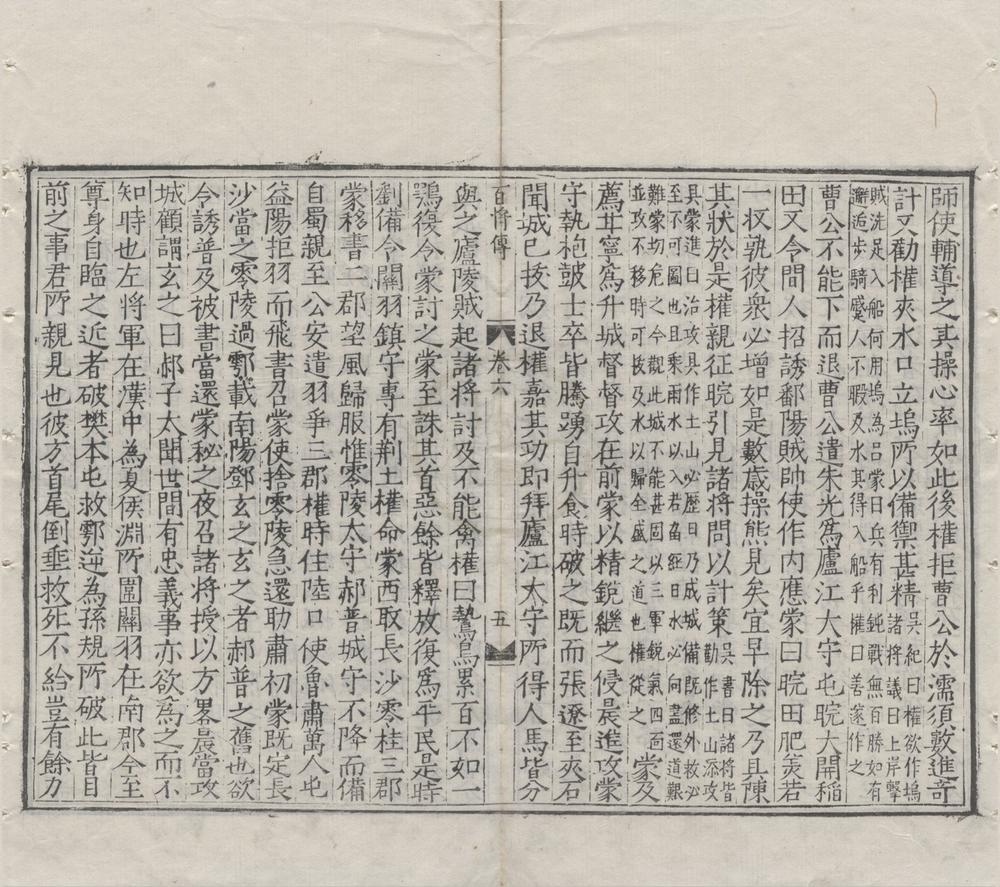 師使輔導之其操心率如此後權拒曹公於濡須數進奇
計又勸權夾水口立塢所以備禦甚精吳紀曰權欲作塢諸將議曰上岸擊
賊洗足入船何用塢為呂蒙曰兵有利鈍戰無百勝如有
邂逅步騎蹙人不暇及水其得入船乎權曰善遂作之
曹公不能下而退曹公遣朱光爲廬江太守屯晥大開稻
田又令間人招誘鄱陽賊帥使作内應蒙曰晥田肥美若
一收孰彼衆必增如是數歲操態見矣宜早除之乃具陳
其狀於是權親征晥引見諸將問以計策吳書曰諸將皆勸作土山添攻
具蒙進曰治攻具作土山必歷日乃成城備既修外救必
至不可圖也且乘雨水以入若畱經日水必向盡還道艱
難蒙切危之今觀此城不能甚固以三軍銳氣四面
並攻不移時可拔及水以歸全盛之道也權從之蒙及
薦甘寧爲升城督督攻在前蒙以精銳繼之侵晨進攻蒙
守執枹鼓士卒皆騰踴自升食時破之既而張遼至夾石
聞城已拔乃退權嘉其功即拜廬江太守所得人馬皆分
百將傳 卷六 五
與之廬陵賊起諸將討及不能禽權曰鷙鳥累百不如一
鶚復令蒙討之蒙至誅其首惡餘皆釋放復爲平民是時
劉備令關羽鎮守專有荆土權命蒙西取長沙零桂三郡
蒙移書二郡望風歸服惟零陵太守郝普城守不降而備
自蜀親至公安遣羽爭三郡權時住陸口使魯肅萬人屯
益陽拒羽而飛書召蒙使捨零陵急還助肅初蒙既定長
沙當之零陵過酃載南陽鄧玄之玄之者郝普之舊也欲
令誘普及被書當還蒙秘之夜召諸將授以方畧晨當攻
城顧謂玄之曰郝子太聞世間有忠義事亦欲爲之而不
知時也左將軍在漢中為夏侯淵所圍關羽在南郡今至
尊身自臨之近者破樊本屯救酃逆為孫規所破此皆目
前之事君所親見也彼方首尾倒垂救死不給豈有餘力